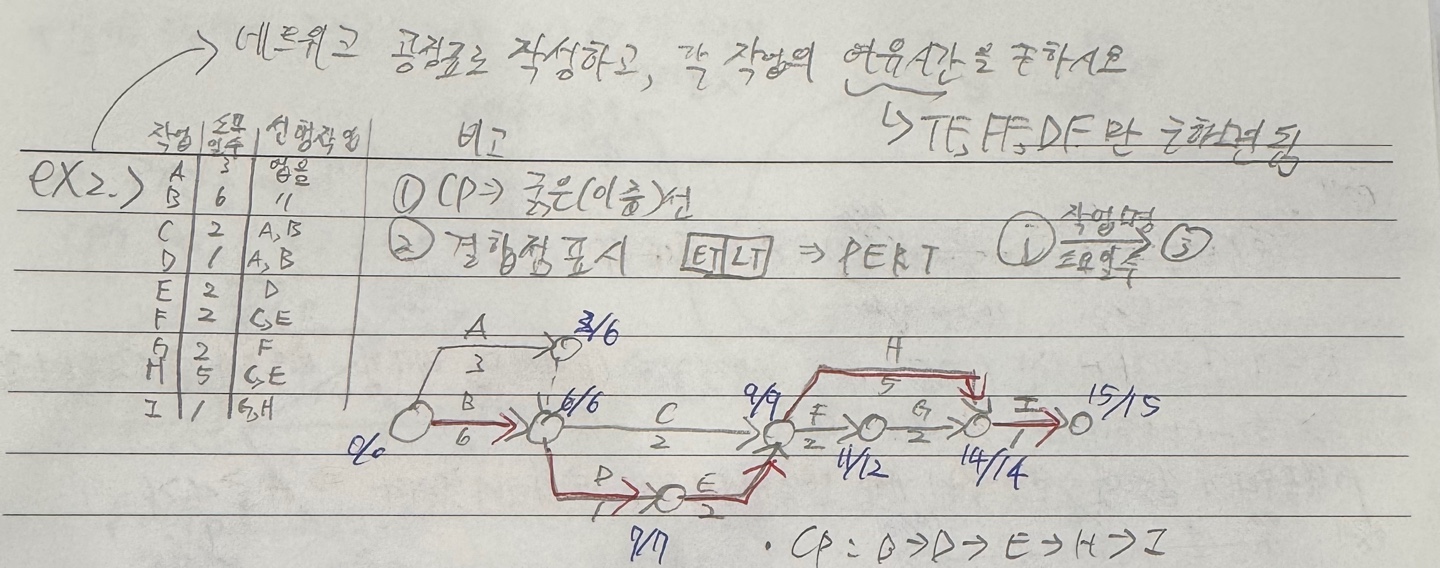 네트워크 공정표로 작성하고, 각 작업의 여유시간을 구하시오
↳ TF, FF, DF만 구하면 됨
작업 | 소요일수 | 선행작업 | 비고
ex2.) A | 3 | 없음
B | 6 | 〃 | ① CP → 굵은(이중)선
C | 2 | A, B | ② 결합점 표시 ET LT ⇒ PERT ⓘ 작업명 소요일수 ⓙ
D | 1 | A, B
E | 2 | D
F | 2 | C, E
G | 2 | F
H | 5 | C, E
I | 1 | G, H
A 3 3/6 H 5
0/0 B 6 6/6 C 2 9/9 F 2 11/12 G 2 14/14 I 1 15/15
D 1 7/7 E 2
· CP : B → D → E → H → I